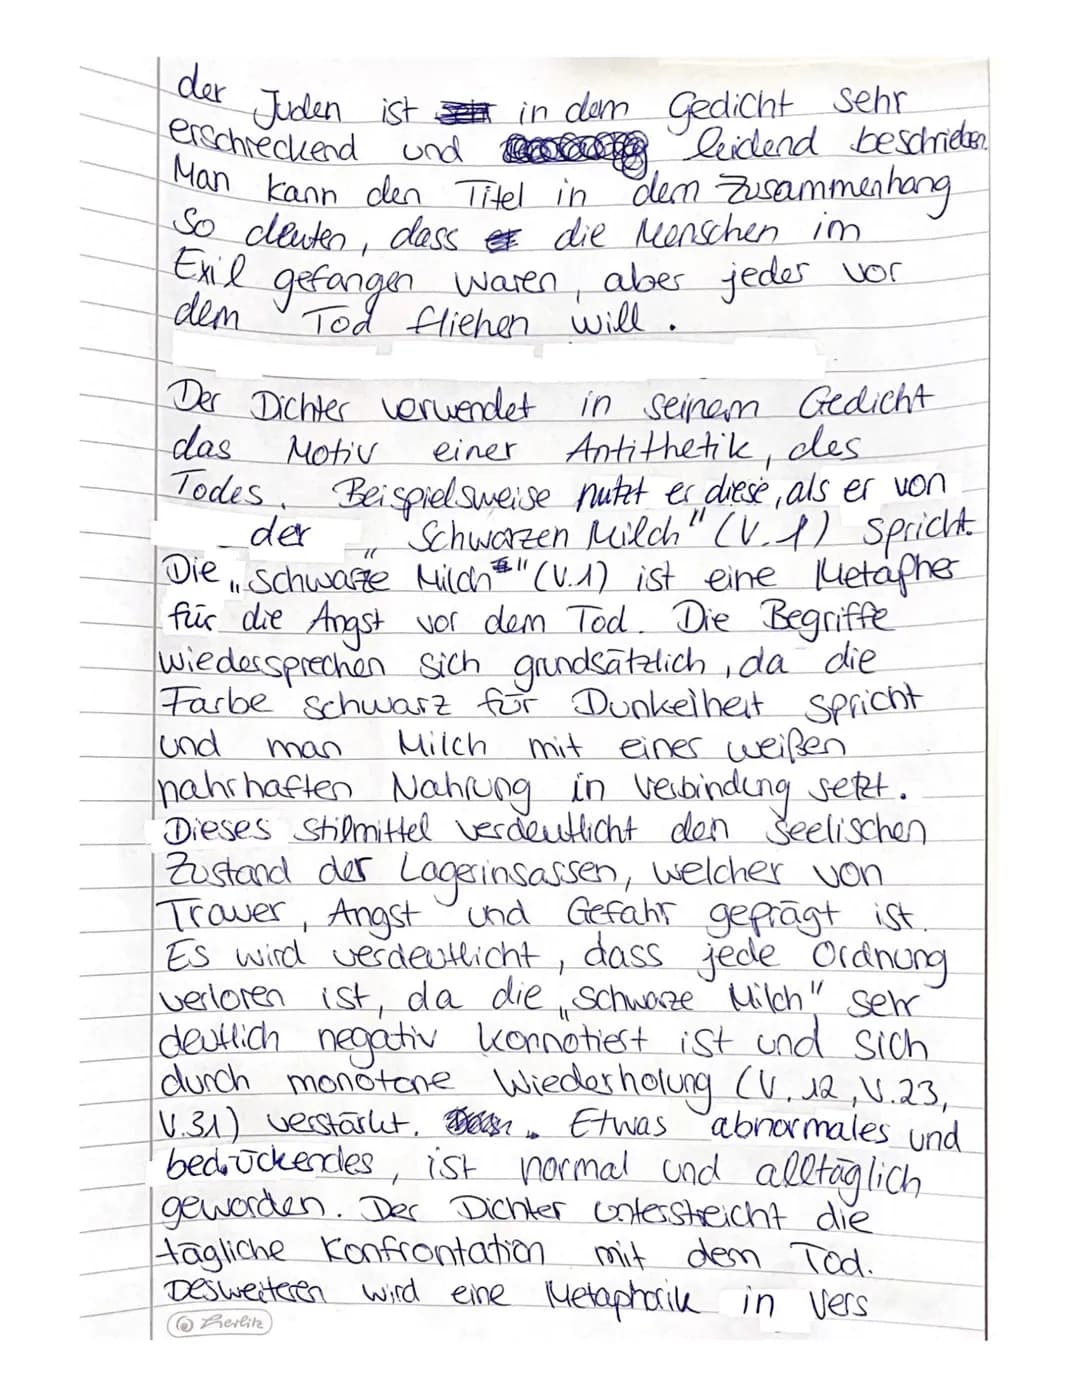 der Juden ist in dem Gedicht sehr
erschreckend und leidend beschrieben.
Man kann den Titel in dem Zusammenhang
so deuten, dass die Menschen im
Exil gefangen waren, aber jeder vor
dem Tod fliehen will.
Der Dichter verwendet in seinem Gedicht
das Motiv einer Antithetik, des
Todes. Beispielsweise nutzt er diese, als er von
der „Schwarzen Milch" (V. 1) spricht.
Die „Schwarze Milch" (V.1) ist eine Metapher
für die Angst vor dem Tod. Die Begriffe
wiedersprechen sich grundsätzlich, da die
Farbe schwarz für Dunkelheit spricht
und man Milch mit einer weißen
nahrhaften Nahrung in Verbindung setzt.
Dieses Stilmittel verdeutlicht den Seelischen
Zustand der Lagerinsassen, welcher von
Trauer, Angst und Gefahr geprägt ist.
Es wird verdeutlicht, dass jede Ordnung
verloren ist, da die „Schwarze Milch" sehr
deutlich negativ konnotiert ist und sich
durch monotone Wiederholung (V. 12, V.23,
V.31) verstärkt. Etwas abnormales und
bedrückendes, ist normal und alltäglich
geworden. Der Dichter unterstreicht die
tägliche Konfrontation mit dem Tod.
Desweiteren wird eine Metaphorik in Vers
Herlitz